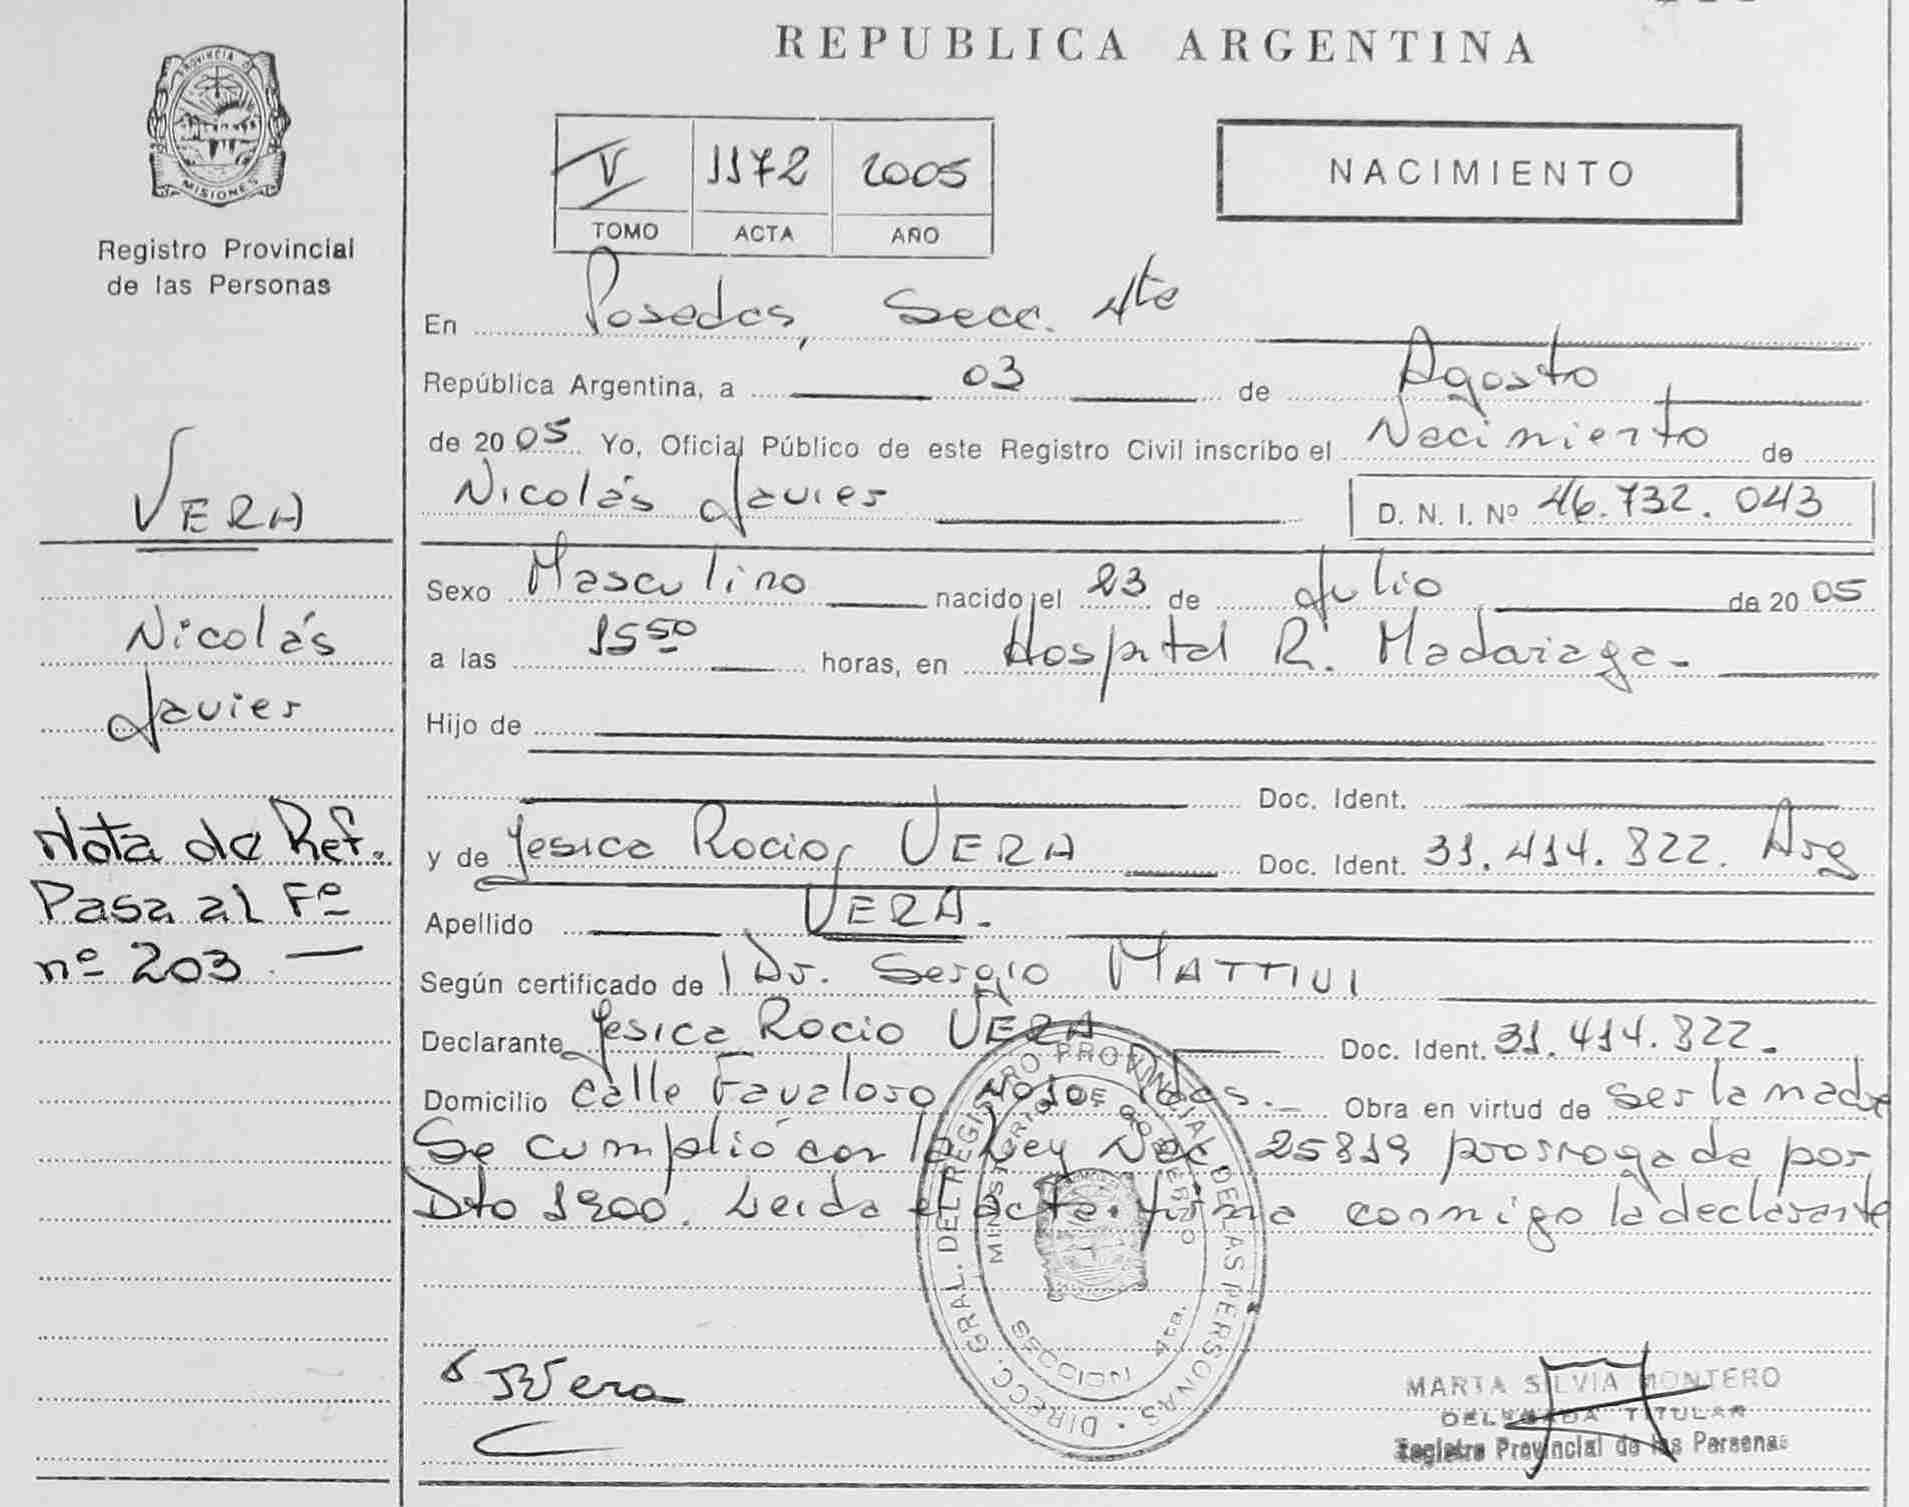 REPUBLICA ARGENTINA
PROVINCIA D
MISIONES
Registro Provincial
de las Personas
V 1172 2005
TOMO ACTA AÑO
NACIMIENTO
En Posadas, Secc. 4ta
República Argentina, a 03 de Agosto
de 2005 Yo, Oficial Público de este Registro Civil inscribo el Nacimiento de
Nicolás Javier D. N. I. Nº 46.732.043
Sexo Masculino nacido el 23 de Julio de 2005
a las 15 50 horas, en Hospital R. Madariaga.
Hijo de
Doc. Ident.
y de Yesica Rocio, VERA Doc. Ident. 31.414.822. Arg
Apellido VERA.
Según certificado de Dr. Sergio MATTIVI
Declarante Yesica Rocio VERA Doc. Ident. 31.414.822.
Domicilio calle Favaloro Pdas. Obra en virtud de ser la madre
Se cumplió con la Ley Nac. 25819 prorrogada por
Dto 1900. Leída el acta firma conmigo la declarante
VERA
Nicolás
Javier
Nota de Ref.
Pasa al Fº
nº 203
DIRECC. GRAL. DEL REGISTRO PROVINCIAL DE LAS PERSONAS
MINISTERIO DE GOBIERNO
SECCION 4ta.
Vera
MARTA SILVIA MONTERO
DELEGADA TITULAR
Registro Provincial de las Personas